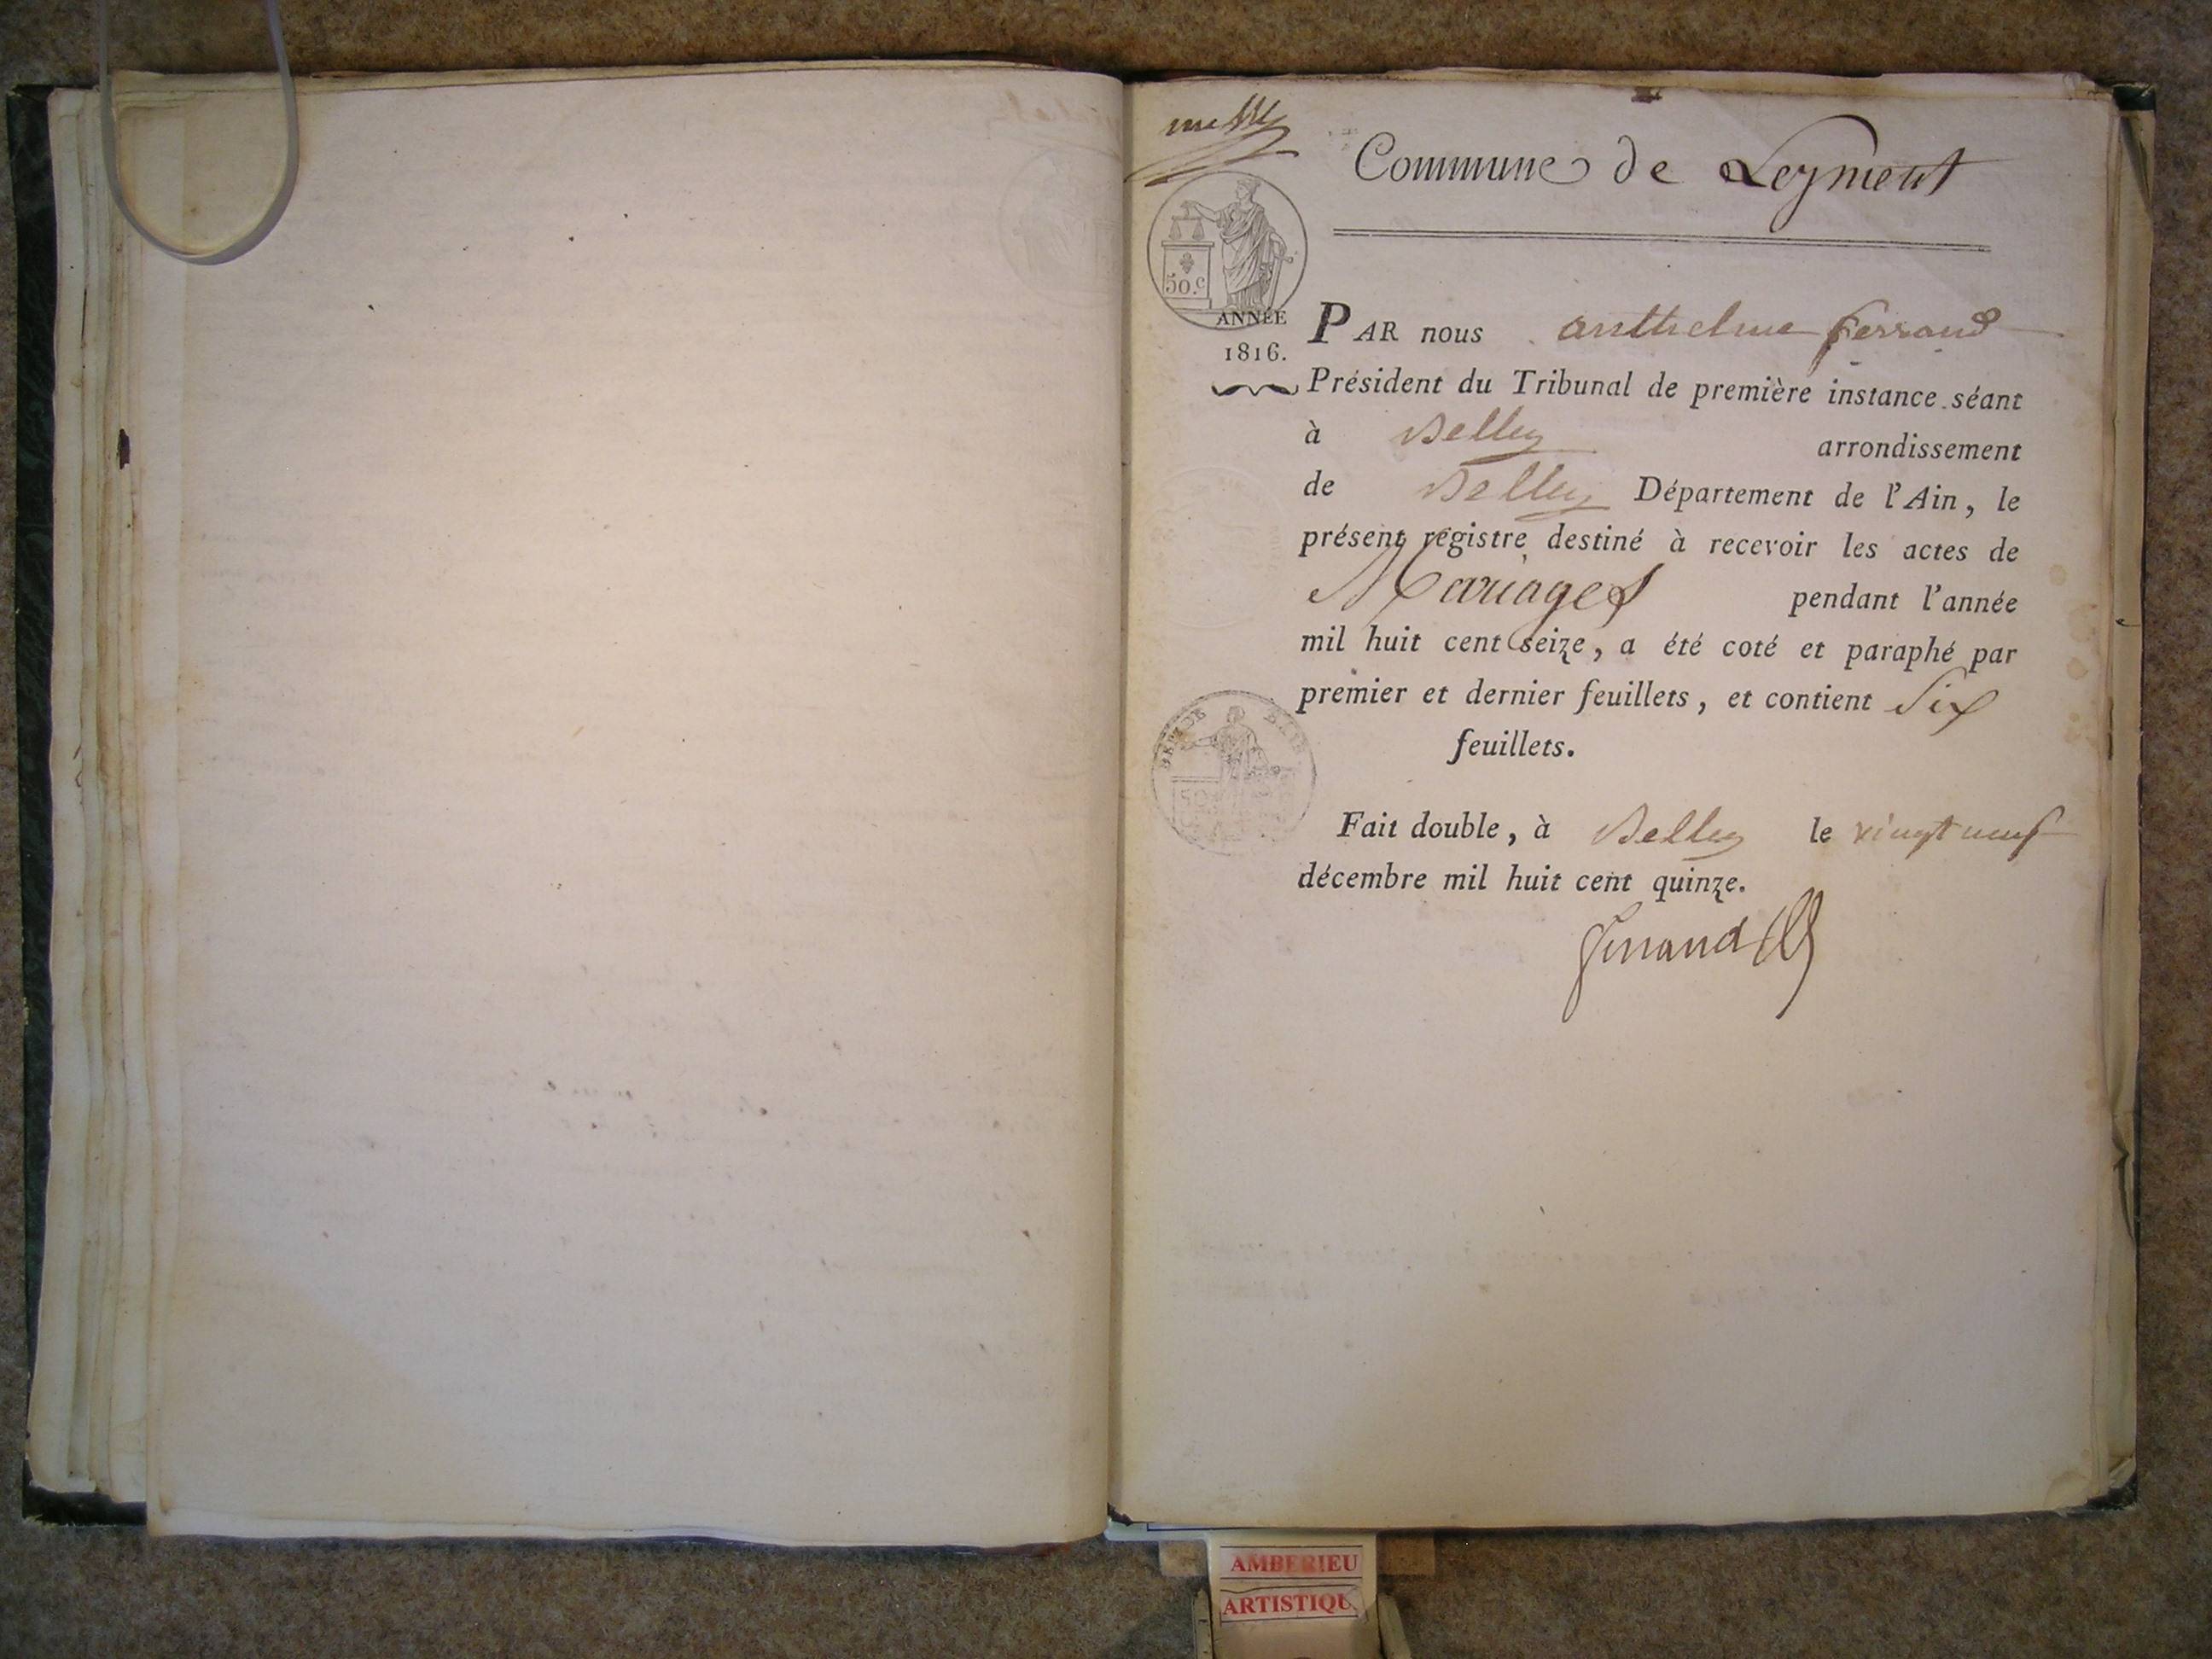 Commune de Leyment
50.c
ANNÉE
1816.
PAR nous anthelme ferrand
Président du Tribunal de première instance séant
à Belley arrondissement
de Belley Département de l'Ain, le
présent registre destiné à recevoir les actes de
Mariages pendant l'année
mil huit cent seize, a été coté et paraphé par
premier et dernier feuillets, et contient Six
feuillets.
Fait double, à Belley le vingt neuf
décembre mil huit cent quinze.
ferrand
AMBERIEU
ARTISTIQU